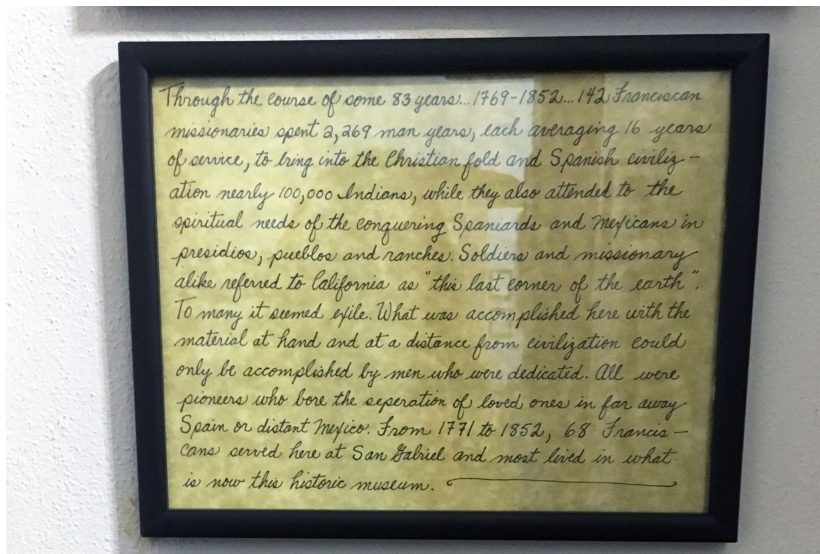 Through the course of some 83 years...1769-1852...142 Franciscan
missionaries spent 2,269 man years, each averaging 16 years
of service, to bring into the Christian fold and Spanish civiliz-
ation nearly 100,000 Indians, while they also attended to the
spiritual needs of the conquering Spaniards and Mexicans in
presidios, pueblos and ranches. Soldiers and missionary
alike referred to California as "this last corner of the earth".
To many it seemed exile. What was accomplished here with the
material at hand and at a distance from civilization could
only be accomplished by men who were dedicated. All were
pioneers who bore the seperation of loved ones in far away
Spain or distant Mexico. From 1771 to 1852, 68 Francis-
cans served here at San Gabriel and most lived in what
is now this historic museum.